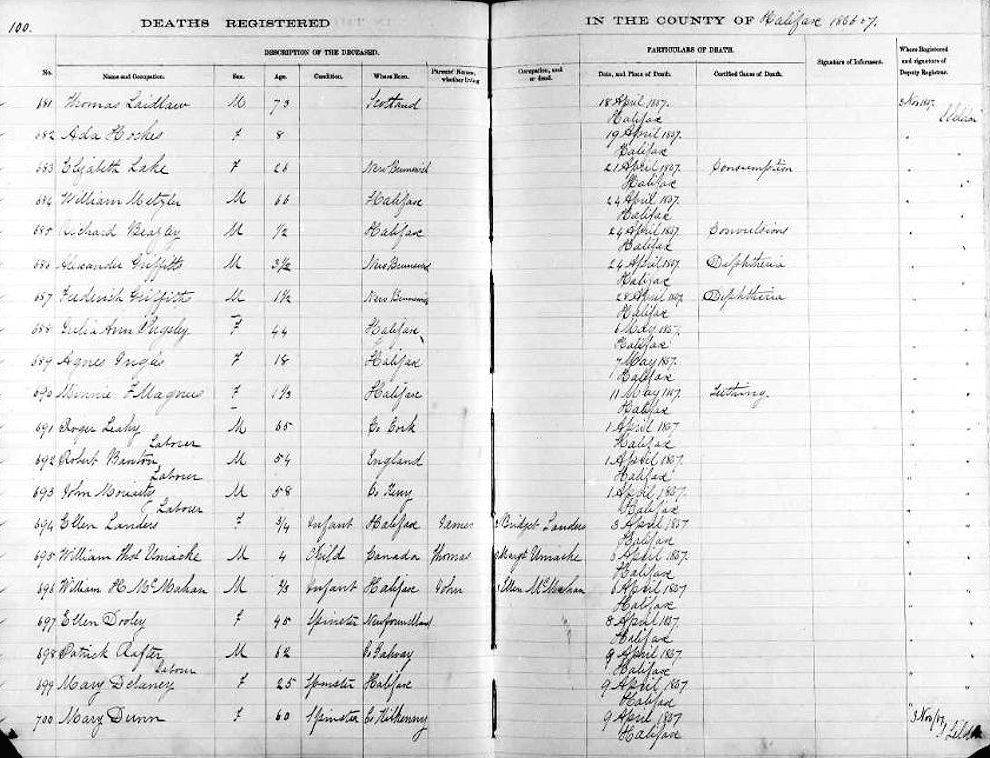 100.
DEATHS REGISTERED
IN THE COUNTY OF Halifax 1866-7.
DESCRIPTION OF THE DECEASED.
PARTICULARS OF DEATH.
No. Name and Occupation. Sex. Age. Condition. Where Born. Parents' Names, whether living
Occupation, and or dead. Date, and Place of Death. Certified Cause of Death. Signature of Informant. Where Registered and signature of Deputy Registrar.
681 Thomas Laidlaw M 73 Scotland 18 April 1867. 3 Nov 1867.
Halifax
682 Ada F 8 19 April 1867. "
Halifax
683 Elizabeth Lake F 26 New Brunswick 21 April 1867. Consumption "
Halifax
684 William Metzler M 66 Halifax 24 April 1867. "
Halifax
685 Richard M 1/2 Halifax 24 April 1867 Convulsions "
Halifax
686 Alexander Griffiths M 3 1/2 New Brunswick 24 April 1867 Diphtheria "
Halifax
687 Frederick Griffiths M 1 1/2 New Brunswick 28 April 1867 Diphtheria "
Halifax
688 Julia Ann Pugsley F 44 Halifax 6 May 1867. "
Halifax
689 Agnes Inglis F 18 Halifax 7 May 1867. "
Halifax
690 Minnie F Magnus F 1 1/3 Halifax 11 May 1867. Teething. "
Halifax
691 Roger Leahy M 65 Co Cork 1 April 1867 "
Laborer Halifax
692 Robert Banton M 54 England 1 April 1867. "
Laborer Halifax
693 John Moriarty M 58 Co Kerry 1 April 1867. "
Laborer Halifax
694 Ellen Landers F 3/4 Infant Halifax James Bridget Landers 3 April 1867 "
Halifax
695 William Thos Umacke M 4 Child Canada Thomas Margt Umacke 5 April 1867. "
Halifax
696 William H McMahan M 2/3 Infant Halifax John Ellen McMahan 6 April 1867 "
Halifax
697 Ellen Dooley F 45 Spinster Newfoundland 8 April 1867. "
Halifax
698 Patrick Rafter M 62 Co Galway 9 April 1867 "
Labour Halifax
699 Mary Delaney F 25 Spinster Halifax 9 April, 1867 "
Halifax
700 Mary Dunn F 60 Spinster Co Kilkenny 9 April 1867 " 3 Nov/67
Halifax